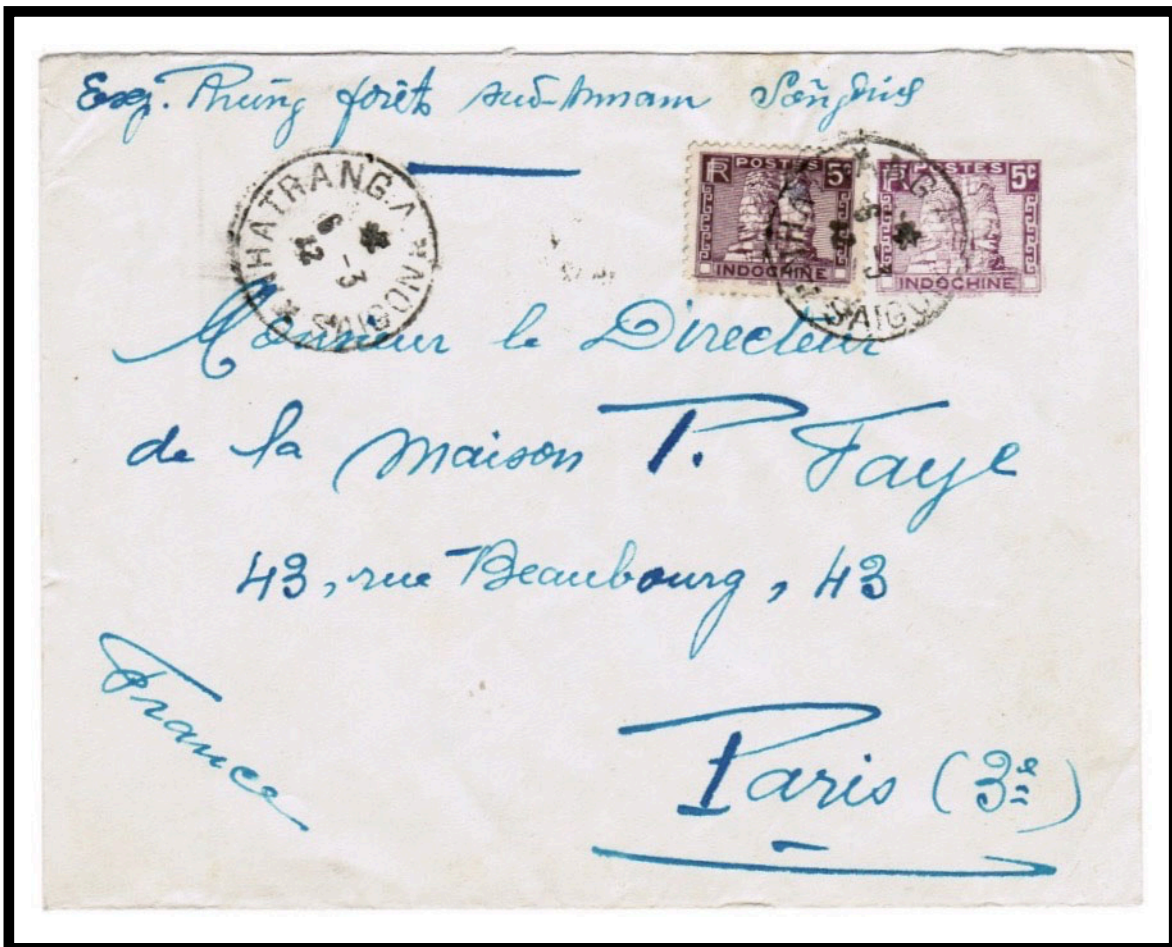 forêts sud-Annam
NHATRANG A SAIGON
6 -3
RF POSTES 5c
INDOCHINE
RF POSTES 5c
INDOCHINE
Monsieur le Directeur
de la maison P. Faye
43, rue Beaubourg, 43
France
Paris (3e)